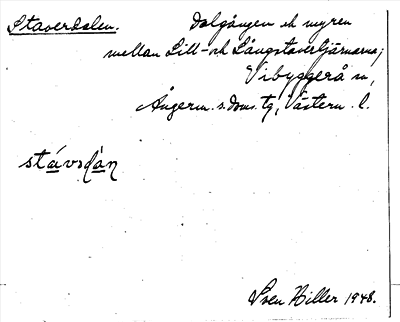 Staverdalen. Dalgången ok myren
mellan Lill- ok Långstavertjärnarna,
Vibyggerå sn,
Ångerm. s. doms. tg, Västern. l.
stávəḍàn
Sven Hiller 1948.